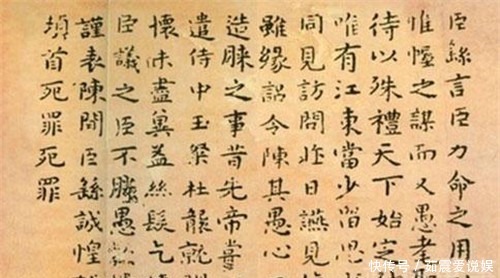 臣繇言臣力命之用
惟幄之謀而又愚耄
待以殊禮天下始定
唯有江東當少留思
同見訪問昨日讌見
雖緣詔令陳其愚心
造膝之事昔先帝嘗
遣侍中王粲杜襲就
懷未盡冀益絲髮乞
臣議之臣不勝愚款
謹表陳聞臣繇誠惶
頓首死罪死罪
快传号/茹震爱悦娱